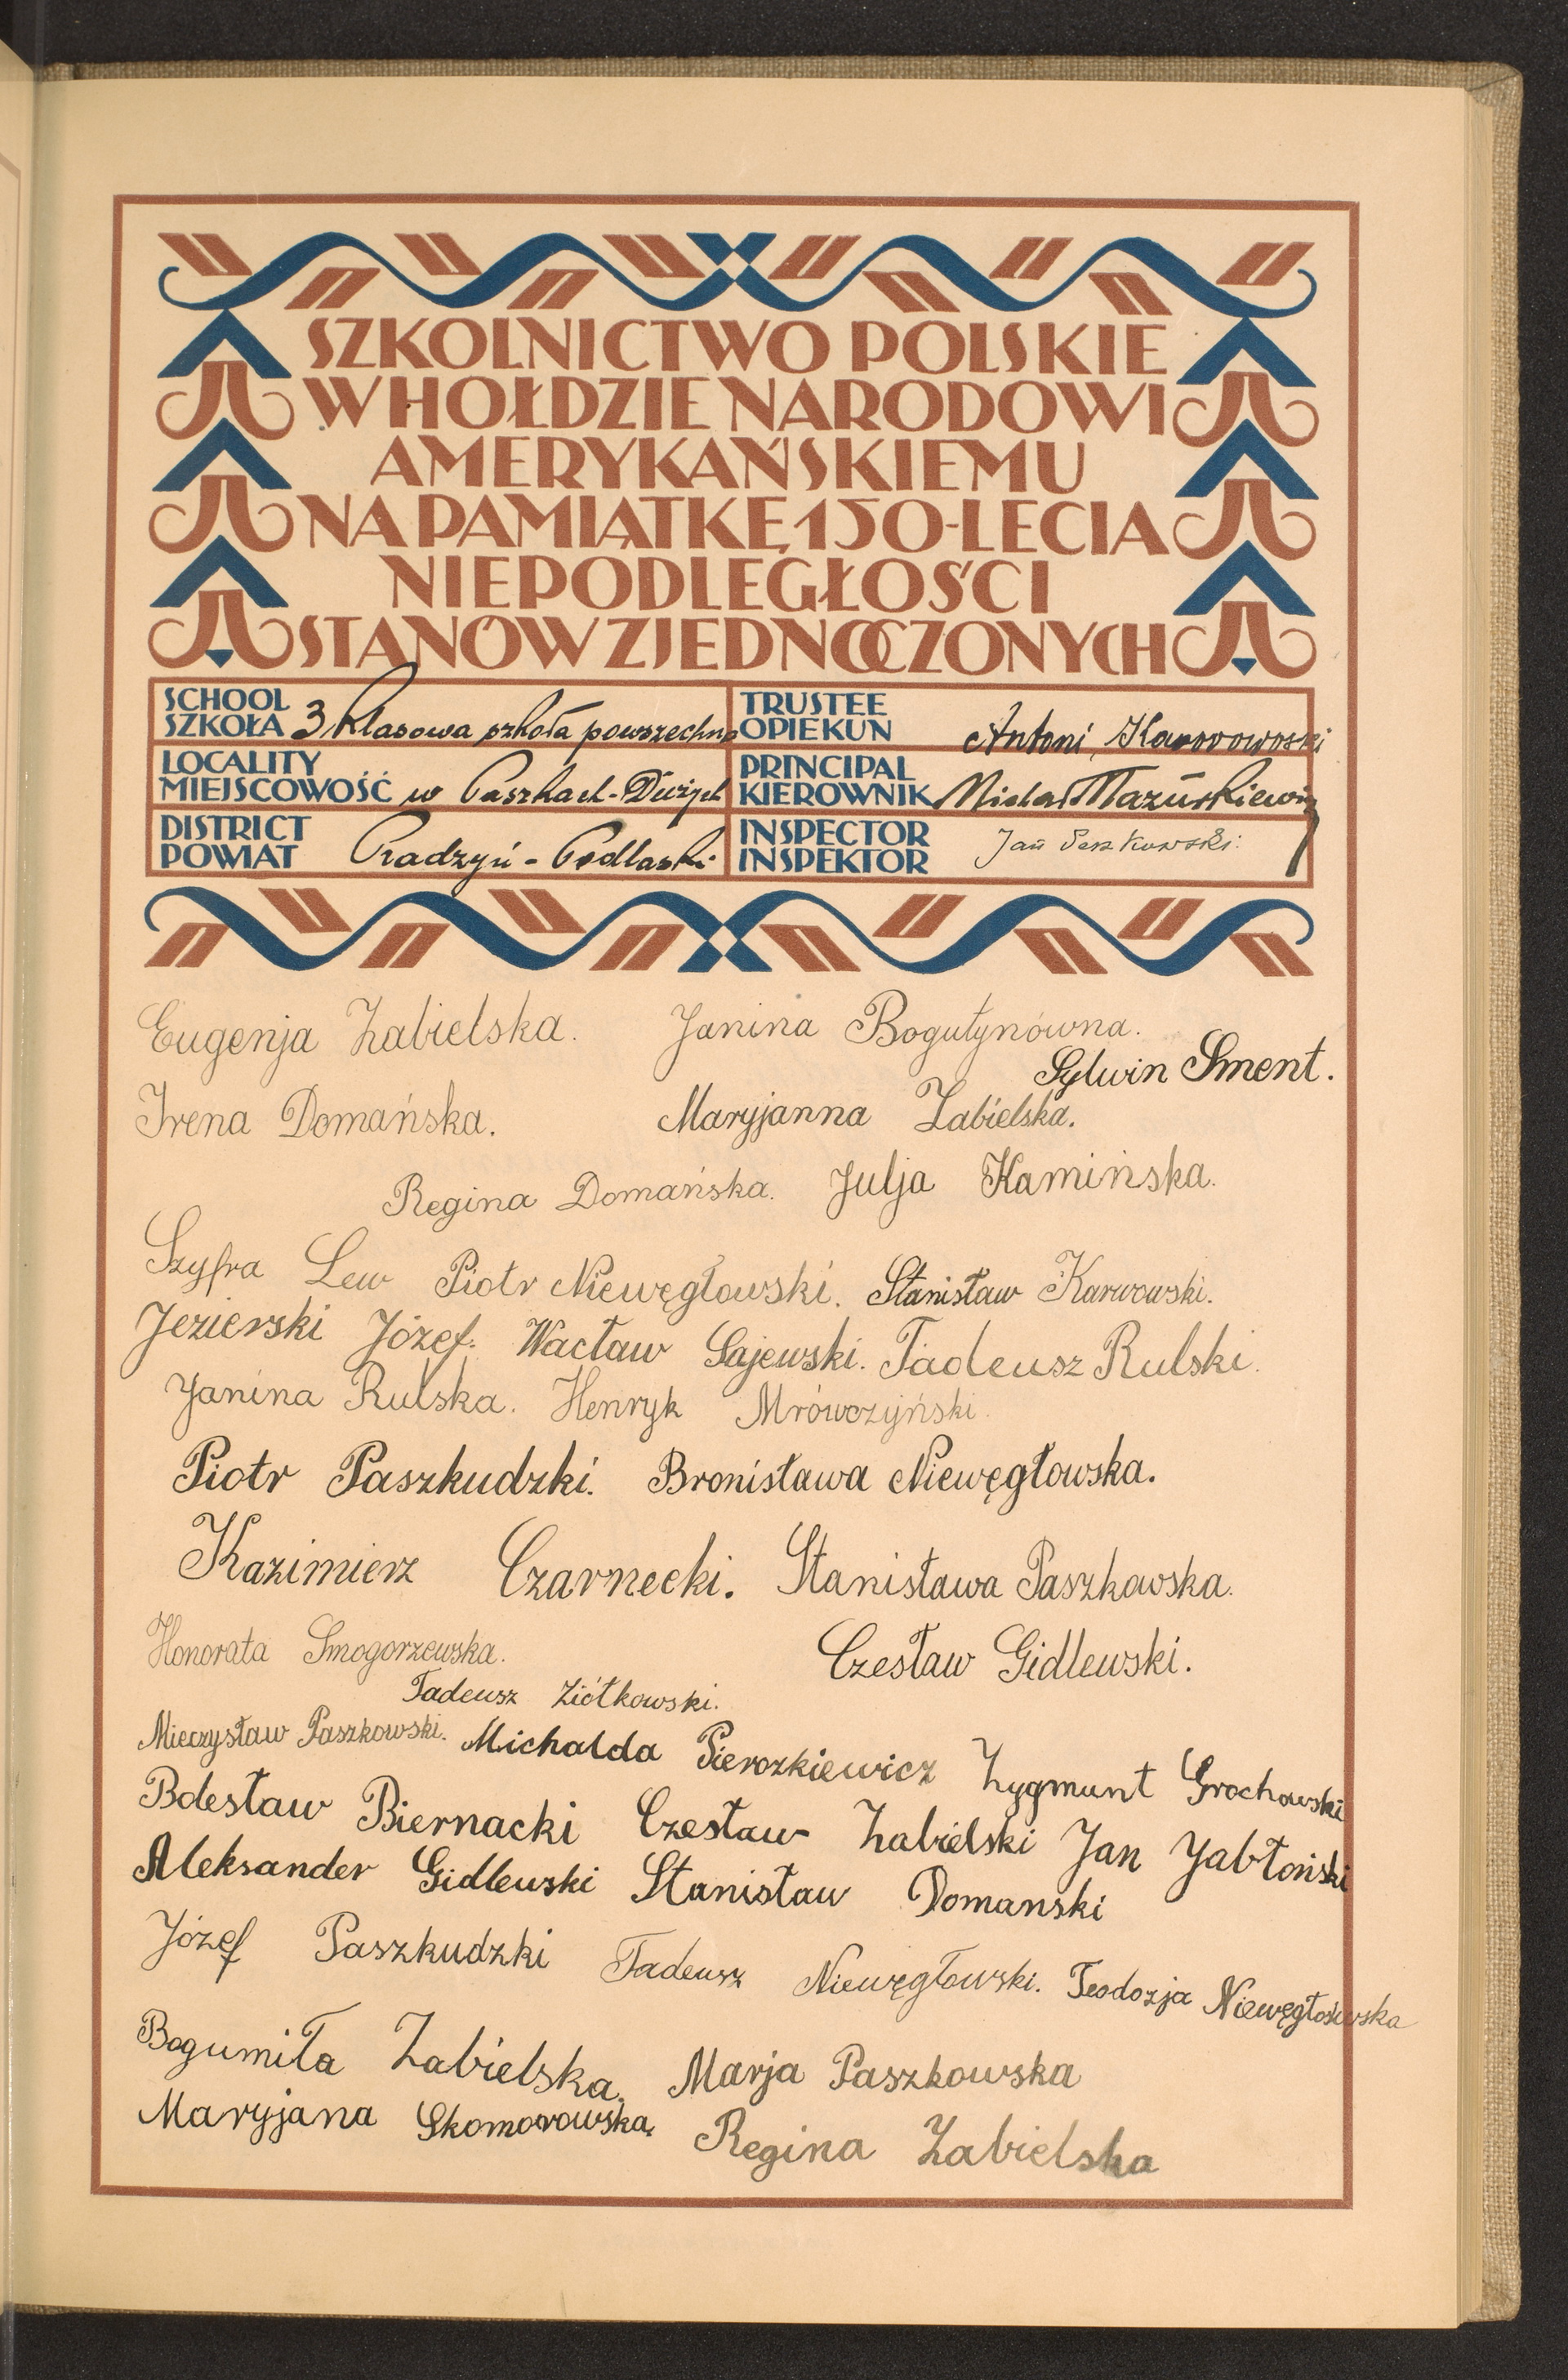 SZKOLNICTWO POLSKIE
W HOŁDZIE NARODOWI
AMERYKAŃSKIEMU
NA PAMIĄTKĘ 150-LECIA
NIEPODLEGŁOŚCI
STANÓW ZJEDNOCZONYCH
SCHOOL
SZKOŁA 3 klasowa szkoła powszechna
LOCALITY
MIEJSCOWOŚĆ w Paszkach-Dużych
DISTRICT
POWIAT Radzyń-Podlaski
TRUSTEE
OPIEKUN Antoni
PRINCIPAL
KIEROWNIK Michał Mazurkiewicz
INSPECTOR
INSPEKTOR Jan
Eugenja Zabielska. Janina Bogutynówna.
Sylwin Sment.
Irena Domańska. Maryjanna Zabielska.
Regina Domańska. Julja Kamińska.
Szyfra Lew Piotr Niewęgłowski. Stanisław Karwowski.
Jezierski Józef. Wacław Gajewski. Tadeusz Rulski.
Janina Rulska. Henryk Mrówczyński.
Piotr Paszkudzki. Bronisława Niewęgłowska.
Kazimierz Czarnecki. Stanisława Paszkowska.
Honorata Smogorzewska. Czesław Gidlewski.
Tadeusz Ziółkowski.
Mieczysław Paszkowski. Michalda Pierozkiewicz Zygmunt Grochowski
Bolesław Biernacki Czesław Zabielski Jan Jabłoński
Aleksander Gidlewski Stanisław Domanski
Józef Paszkudzki Tadeusz Niewęgłowski. Teodozja Niewęgłowska
Bogumiła Zabielska. Marja Paszkowska
Maryjana Skomorowska. Regina Zabielska